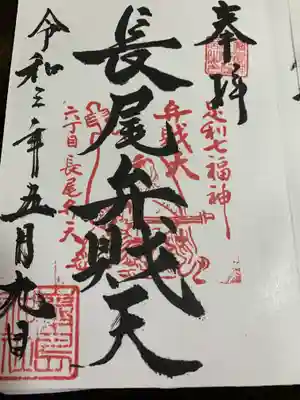 奉拝
足利七福神
弁財天
長尾弁財天
六丁目長尾弁天
令和三年五月九日